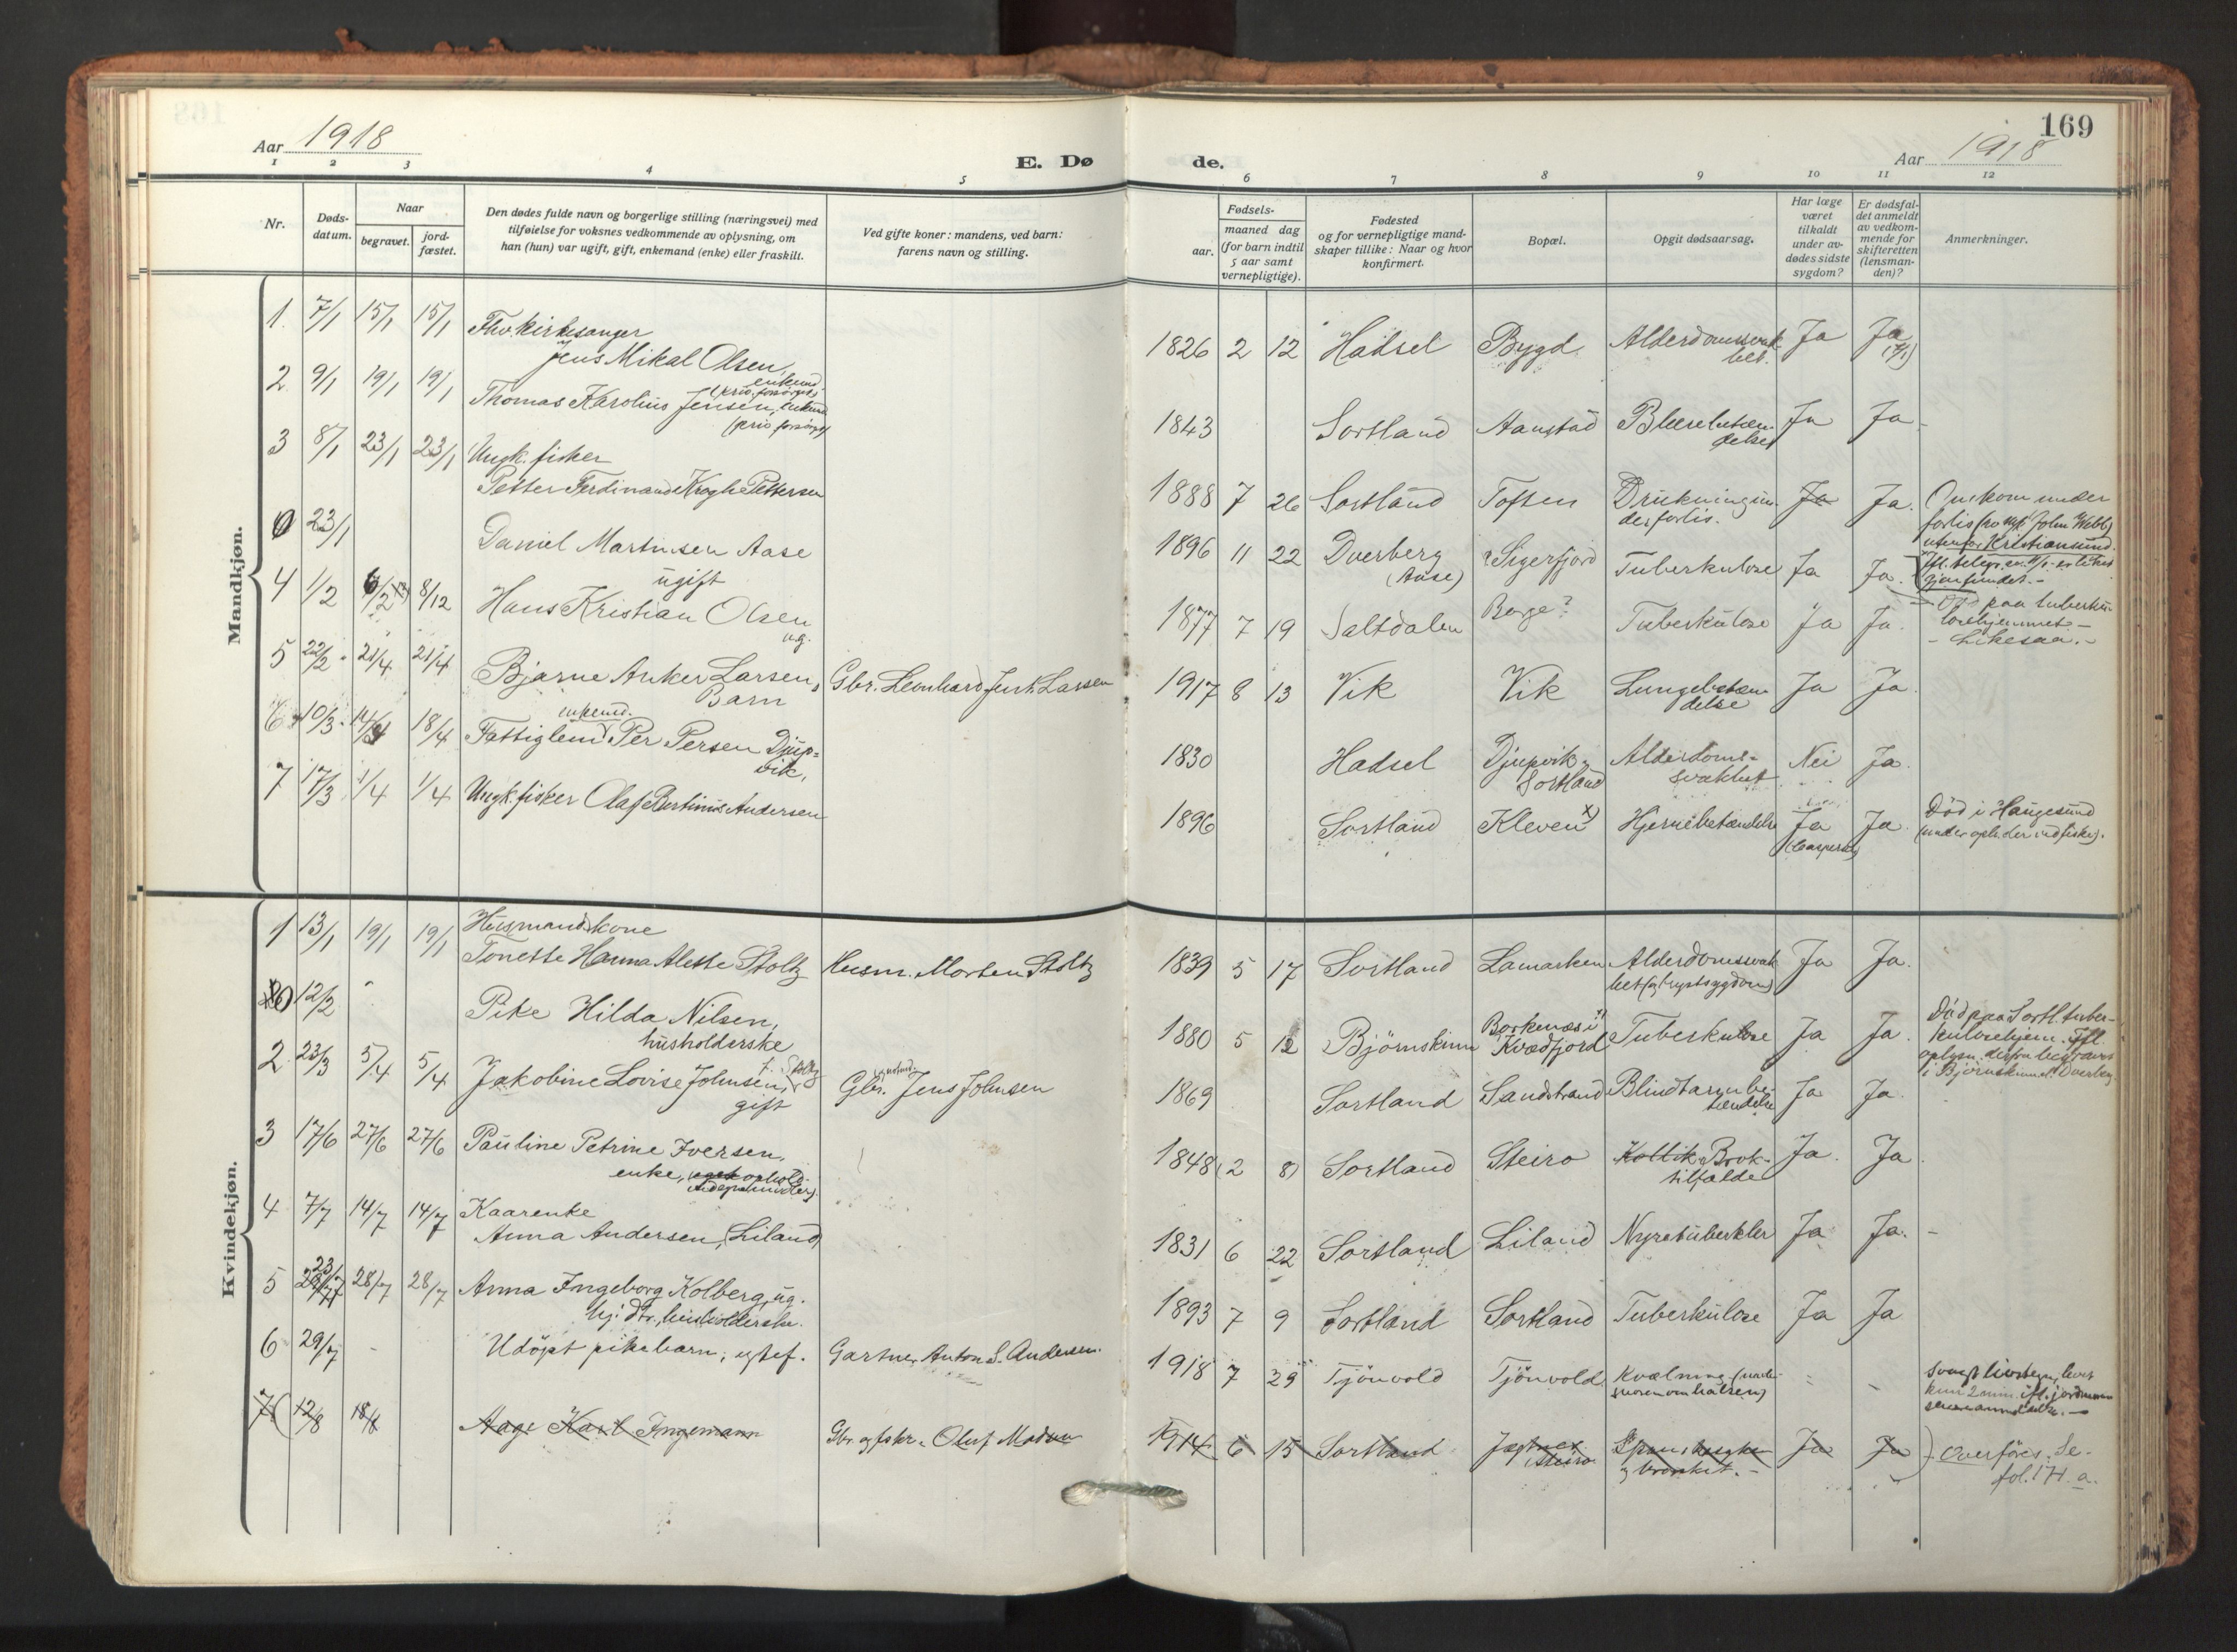 Aar 1918
E. Dø
de.
Aar 1918
169
1 2 3 4 5 6 7 8 9 10 11 12
Nr.
Døds-
datum.
Naar
begravet.
jord-
fæstet.
Den dødes fulde navn og borgerlige stilling (næringsvei) med
tilføielse for voksnes vedkommende av oplysning, om
han (hun) var ugift, gift, enkemand (enke) eller fraskilt.
Ved gifte koner: mandens, ved barn:
farens navn og stilling.
Fødsels-
aar.
maaned dag
(for barn indtil
5 aar samt
vernepligtige).
Fødested
og for vernepligtige mand-
skaper tillike: Naar og hvor
konfirmert.
Bopæl.
Opgit dødsaarsag.
Har læge
været
tilkaldt
under av-
dødes sidste
sygdom?
Er dødsfal-
det anmeldt
av vedkom-
mende for
skifteretten
(lensman-
den)?
Anmerkninger.
Mandkjøn.
1. 7/1 15/1 15/1 Fhv. kirkesanger
Jens Mikal Olsen,
enkemd.
1826 2 12 Hadsel Bygd. Alderdomssvak
het. Ja Ja
2 9/1 19/1 19/1 Thomas Karolius Jensen, enkemd
(priv. forsørget)
1843 Sortland Aanstad Blærebetæn-
delse Ja Ja
3 8/1 23/1 23/1 Ungk. fisker
Petter Ferdinand Krogh Pettersen
1888 7 26 Sortland Toften Drukning un-
der forlis. Ja Ja. Omkom under
forlis fra John Webb
utenfor Kristiansund.
0 23/1 Daniel Martinsen Aase
ugift
1896 11 22 Dverberg
(Aase) Sigerfjord Tuberkulose Ja Ja.
Død paa tuberku-
losehjemmet
4 1/2 6/2 8/12 Hans Kristian Olsen
ug.
1877 7 19 Saltdalen Borge? Tuberkulose Ja Ja. - Likesaa. -
5 22/2 21/4 21/4 Bjarne Anker Larsen,
Barn
Gbr. Leonhard Larsen
1917 8 13 Vik Vik Lungebetæn-
delse Ja Ja
6 10/3 14/3 18/4 Fattiglem enkemd. Per Persen Djup-
vik,
1830 Hadsel Djupvik
Sortland Alderdoms-
svakhet Nei Ja.
7 17/3 1/4 1/4 Ungk. fisker Olaf Bertinius Andersen
1896 Sortland Kleven x) Hjernebetændelse Ja Ja. Død i Haugesund
Kvindekjøn.
1 13/1 19/1 19/1 Husmandskone
Tonette Hanna Alette Stoltz Husm. Morten Stoltz
1839 5 17 Sortland Lamarken Alderdomssvak
het (og brystsygdom) Ja Ja.
0) 12/2 Pike Hilda Nilsen,
husholderske
1880 5 12 Bjørnskinn Borkenæs i
Kvædfjord Tuberkulose Ja Ja. Død paa Sortl. tuber-
kulosehjem. Ifl.
oplysn. derfra begravet
i Bjørnskinn Dverberg
2 23/3 5/4 5/4 Jakobine Lovise Johnsen, f. Stoltz
gift
Gbr. Jens Johnsen
1869 Sortland Sandstrand Blindtarmbe-
tændelse Ja Ja.
3 17/6 27/6 27/6 Pauline Petrine Iversen,
enke,
1848 (2 8) Sortland Steiro Kollik Brok-
tilfælde Ja. Ja.
4 7/7 14/7 14/7 Kaarenke
Anna Andersen, Liland,
1831 6 22 Sortland Liland Nyretuberkler Ja Ja. -
5 23/7 28/7 28/7 Anna Ingeborg Kolberg, ug.
hj. dtr., husholderske.
1893 7 9 Sortland Sortland Tuberkulose Ja Ja
6 29/7 - Udøpt pikebarn, egtef. Gartner Anton S. Andersen.
1918 7 29 Tjønvold Tjønvold Kvælning (navle-
snoren om halsen) - svagt livstegn, levet
kun 2 min. ifl. jordmor
7 (12/8 18/8 Aage Karl Ingemann Gbr. og fisker Oluf Madsen
1914 6 15 Sortland Steiro og bronkit. - Ja Ja ) Overføres. Se.
fol. 171. a.